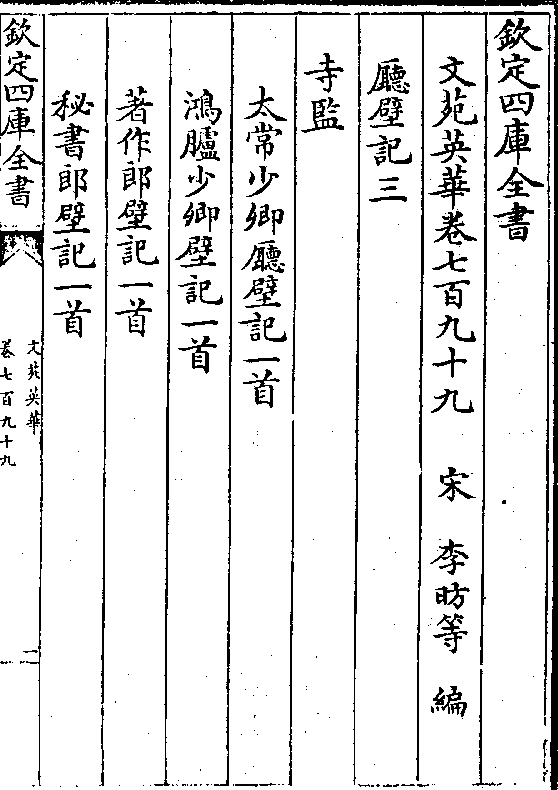 欽定四庫全書
文苑英華卷七百九十九 宋 李昉等 編
廳壁記三
寺監
太常少卿廳壁記一首
鴻臚少卿壁記一首
著作郎壁記一首
秘書郎壁記一首
欽定四庫全書
文苑英華
卷七百九十九